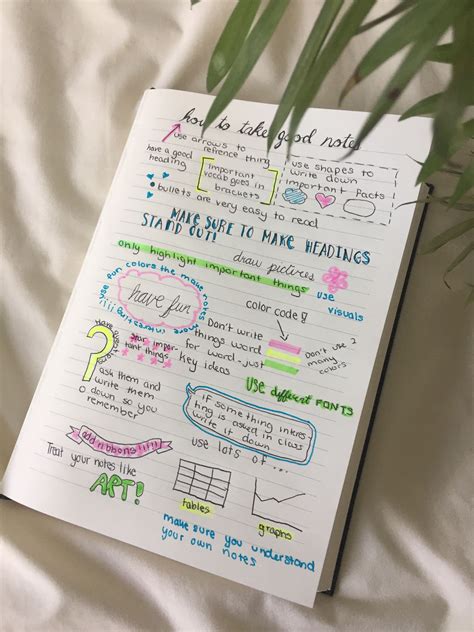 how to take good notes
use arrows to
refrence thing
have a good
heading
important
vocab goes in
brackets
use shapes to
write down
important facts
bullets are very easy to read
MAKE SURE TO MAKE HEADINGS
STAND OUT!
draw pictures
only highlight important things
use
visuals
use fun colors the make notes
more interesting!!!
have fun
color code!!
Don't write
things word
for word-just
key ideas
Don't use 2
many
colors
Have
Star impor-
tant things
ask them and
write them
down so you
remember
USE different FONTS
if something intres-
ting is asked in class
write it down
add ribbons!!!!
use lots of ...
Treat your notes like
ART!
tables
graphs
make sure you understand
your own notes